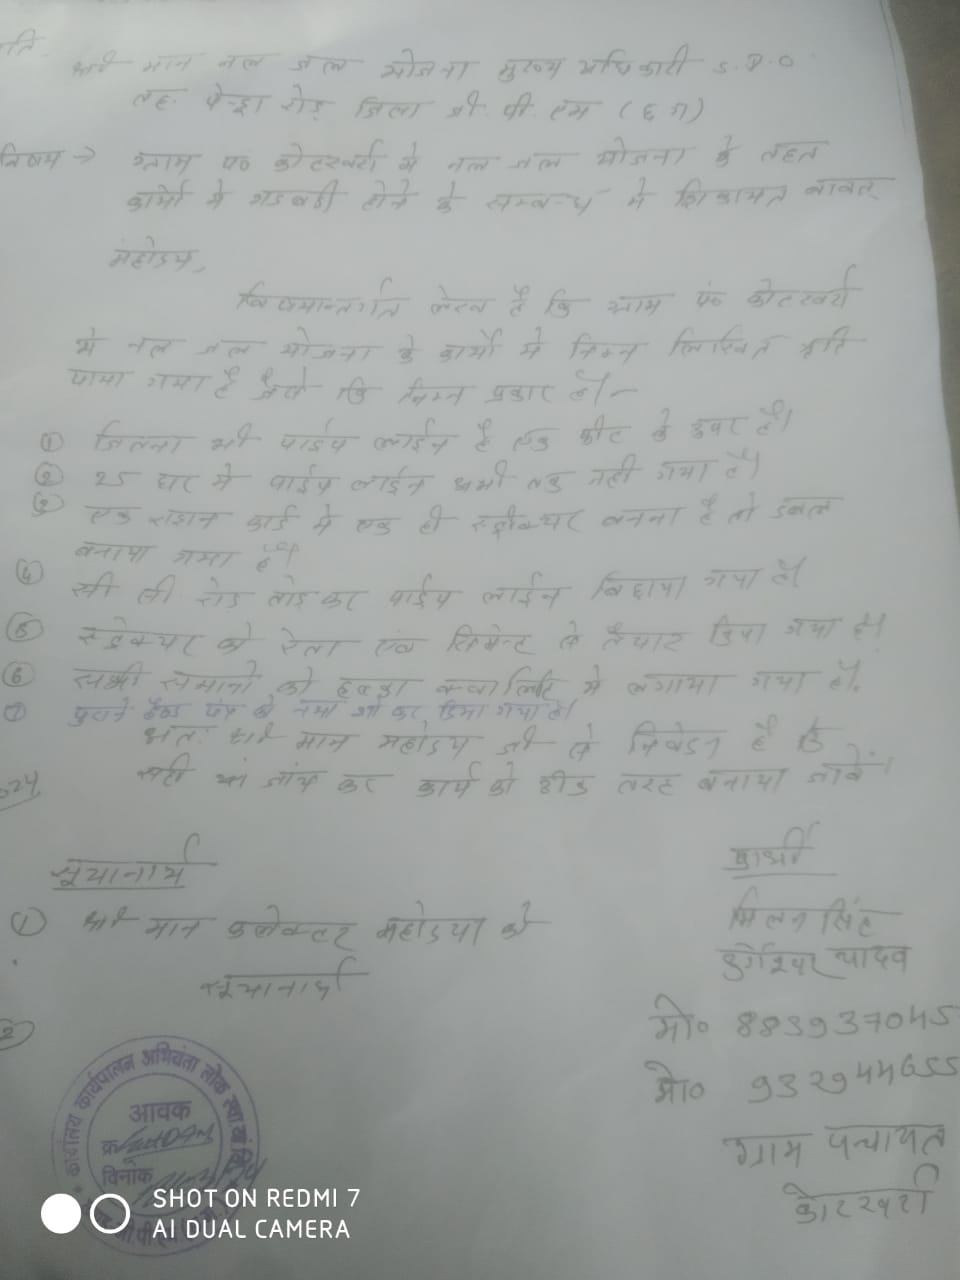 प्रति.
श्री मान नल जल योजना मुख्य अधिकारी S.D.O.
तह. पेन्ड्रा रोड़ जिला जी. पी. एम (छ ग)
विषय → ग्राम पं० कोटखर्रा में नल जल योजना के तहत
कार्यों में गडबडी होने के सम्बन्ध में शिकायत बावत
महोदय,
विषयान्तर्गत लेख है कि ग्राम पं० कोटखर्रा
में नल जल योजना के कार्यों में निम्न लिखित त्रुटि
पाया गया है जैसे कि निम्न प्रकार है।-
① जितना भी पाईप लाईन है एक फीट के उपर है।
② 25 घर में पाईप लाईन अभी तक नही गया है।
③ एक राशन कार्ड में एक ही स्ट्रेक्चर बनना है तो डबल
बनाया गया है।
④ सी सी रोड तोड़ कर पाईप लाईन बिछाया गया है।
⑤ स्ट्रेक्चर को रेता एवं सिमेन्ट से तैयार किया गया है।
⑥ सभी समानो को हल्का क्वालिटि में लगाया गया है।
⑦ पुराने हैण्ड पंप को नया शो कर दिया गया है।
अतः श्री मान महोदय जी से निवेदन है कि
सही जांच कर कार्य को ठीक तरह बनाया जावें।
सूचनार्थ
प्रार्थी
① श्री मान कलेक्टर महोदया को
सूचनार्थ
मिलन सिंह
दुर्गेश्वर यादव
②
मो० 883937045
मो० 932944655
ग्राम पंचायत
कोटखर्रा
कार्यालय कार्यपालन अभियंता लोक स्वा
आवक
क्र
दिनांक
SHOT ON REDMI 7
AI DUAL CAMERA